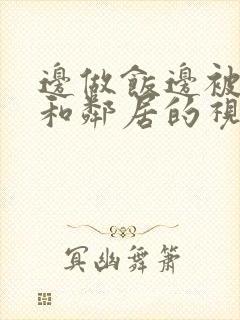 邊做飯邊被
和鄰居的視
冥幽舞簫